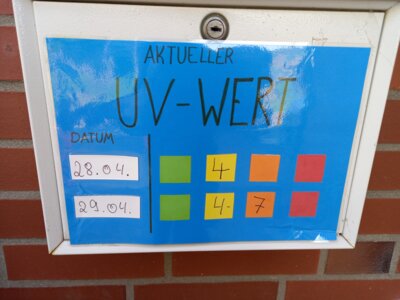 AKTUELLER
UV-WERT
DATUM
28.04. 4
29.04. 4- 7